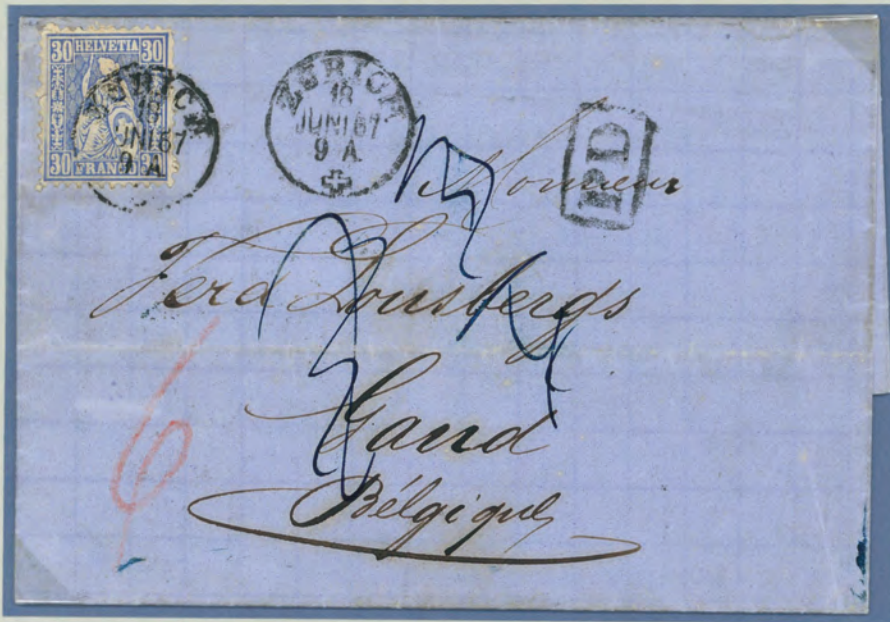 30 HELVETIA 30
30 FRANCO 30
ZÜRICH
18
JUNI 67
9 A
ZÜRICH
18
JUNI 67
9 A.
PD
Monsieur
Ferd Lousbergs
Gand
Bélgique
6